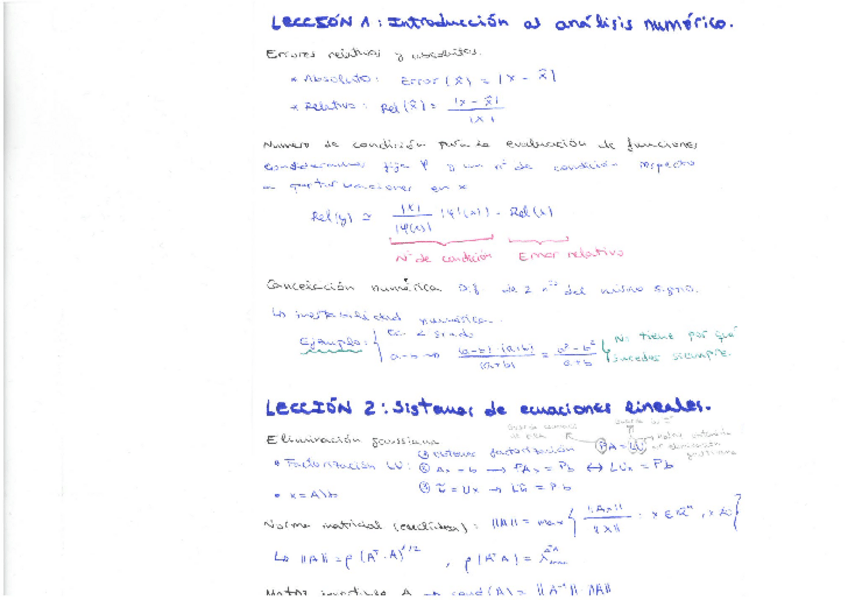 LECCIÓN 1: Introducción al análisis numérico.
Errores relativos y absolutos.
* Absoluto: Error(x̂) = |x - x̂|
* Relativo: Rel(x̂) = |x - x̂| / |x|
Numero de condición para la evaluación de funciones
Consideramos fija φ y un nº de condición respecto
a perturbaciones en x
Rel(y) ≅ |x| / |φ(x)| |φ'(x)| · Rel(x)
Nº de condición Error relativo
Cancelación numérica Dif de 2 nºs del mismo signo.
↳ inestabilidad numérica.
Ejemplo:
a-b → (a-b)·(a+b) / (a+b) = a² - b² / a+b
No tiene por qué
suceder siempre.
LECCIÓN 2: Sistemas de ecuaciones lineales.
Eliminación gaussiana
PA = LU
① factorización
• Factorización LU: ② Ax = b → PAx = Pb ↔ LUx = Pb
• x = A\b ③ ũ = Ux → Lũ = Pb
Norma matricial (euclídea): ||A|| = max { ||Ax|| / ||x|| : x ∈ ℝⁿ, x ≠ 0 }
↳ ||A|| = ρ(Aᵀ·A)^1/2, ρ(AᵀA) = λmax
Matriz invertible A → cond(A) = ||A⁻¹|| ||A||